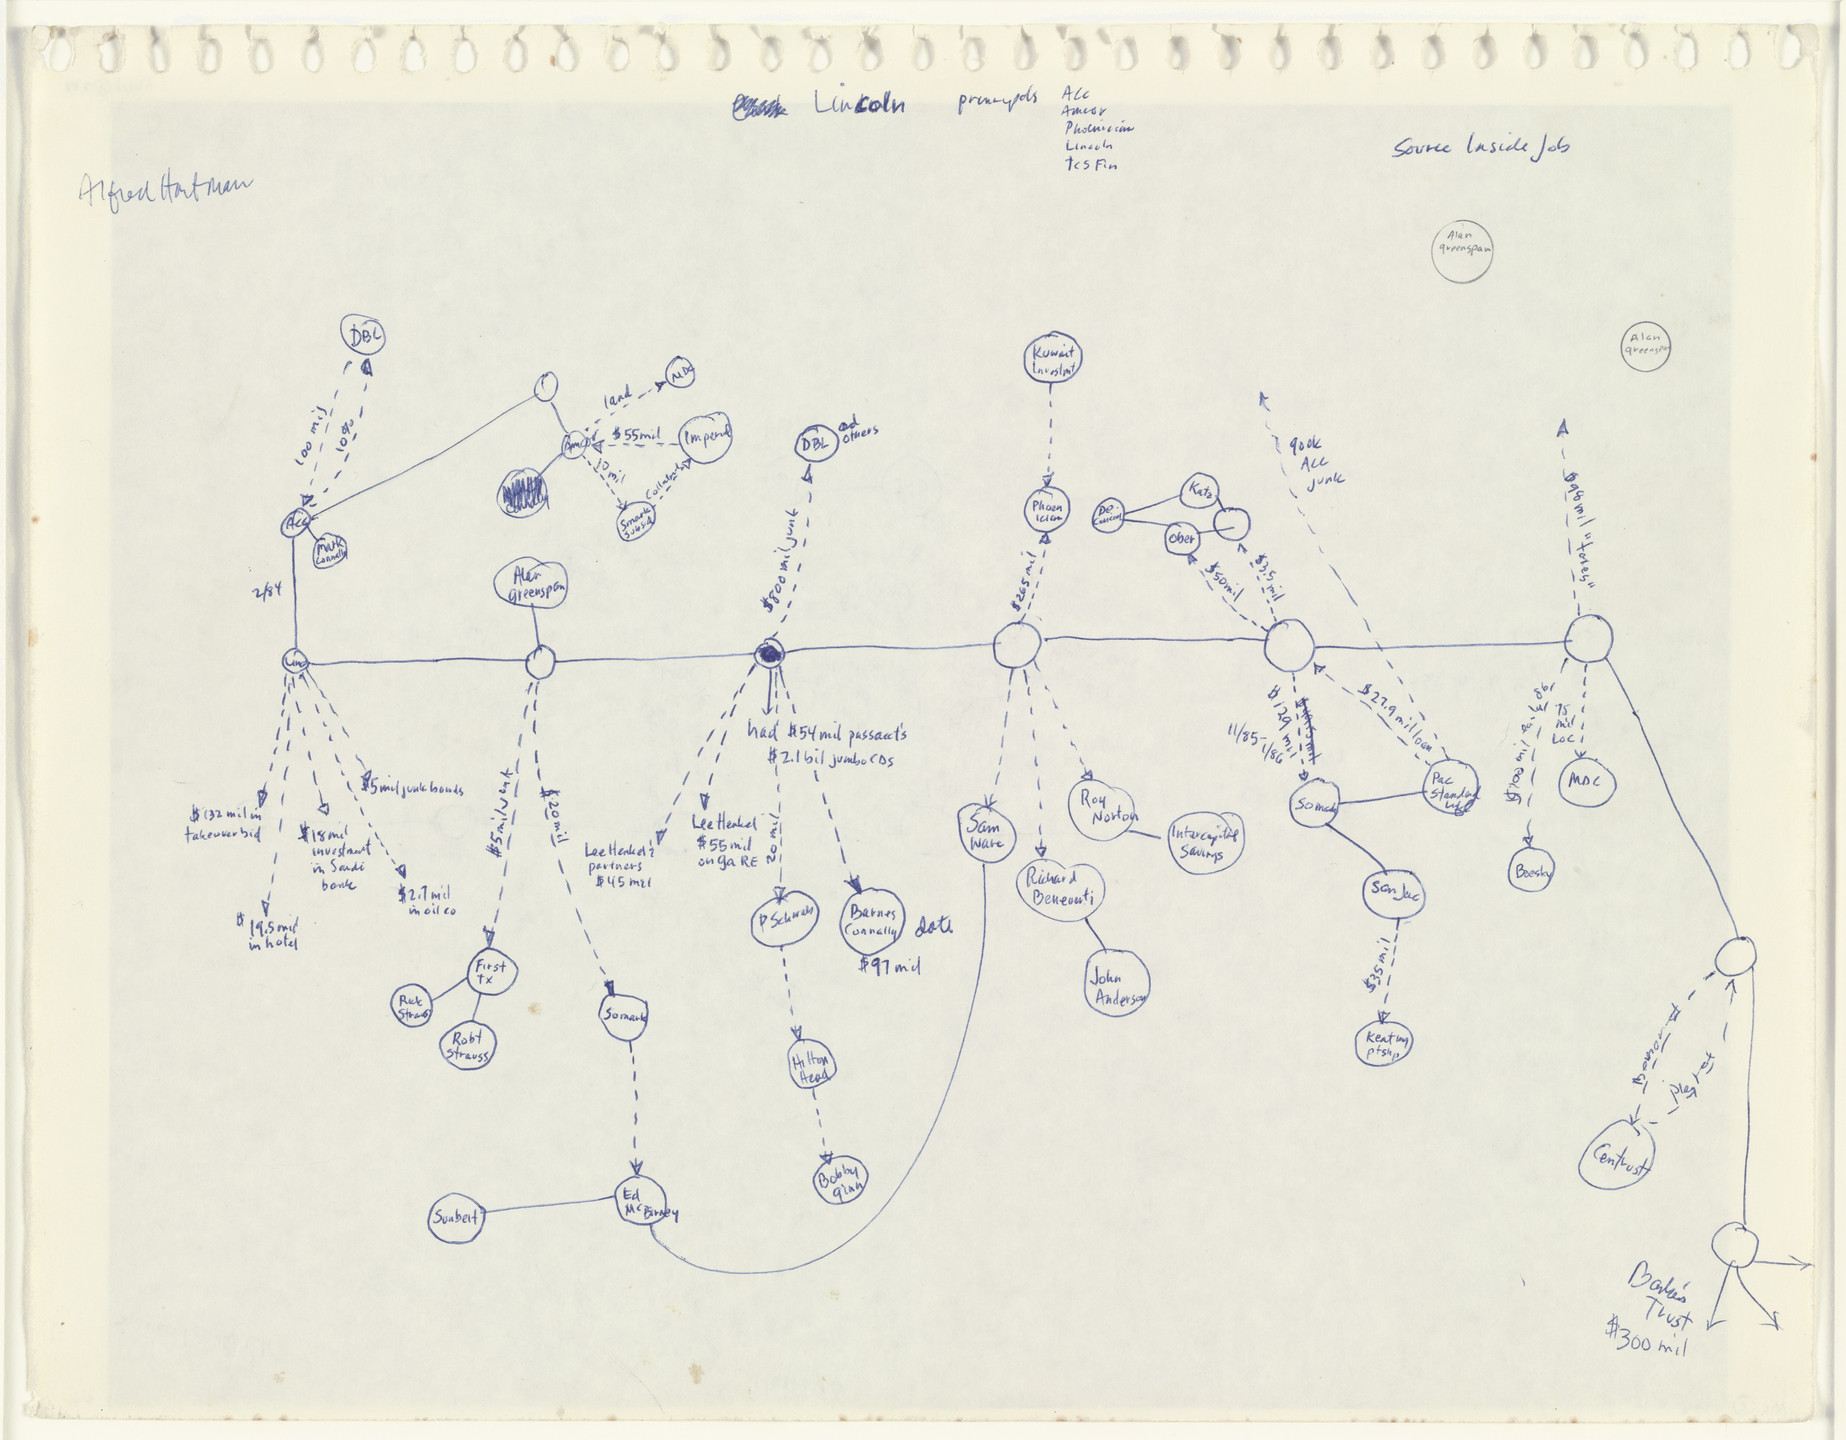 Lincoln
Acc
Amcor
Phoenician
Lincoln
TCS Fin
Source Inside Job
Alfred Hartman
Alan
greenspan
Alan
greenspan
DBL
100 mil
10%
Acc
Mark
Connally
2/84
land
MDC
$55 mil
Imperial
10 mil
Smark
Subsid
DBL
and
others
$800 mil junk
Alan
greenspan
Kuwait
Investmt
Phoen
ician
$265 mil
De
Katz
Ober
$50 mil
$35 mil
900k
Acc
junk
Linc
$132 mil in
takeover bid
$19.5 mil
in hotel
$18 mil
investment
in Saudi
bank
$5 mil junk bonds
$2.7 mil
in oil co
$5 mil junk
First
Tx
Rick
Strauss
Robt
Strauss
$20 mil
Somark
Ed
McBirney
Sunbelt
had $54 mil passacts
$2.1 bil jumbo CDs
Lee Henkel's
partners
$45 mil
Lee Henkel
$55 mil
on ga RE
20 mil
P Schwab
Hilton
Head
Bobby
ginn
Barnes
Connally
date
$97 mil
Sam
Ware
Richard
Beneventi
John
Anderson
Roy
Norton
Intercapital
Savings
$129 mil
11/85-
1/86
$27.9 mil loan
Somark
Pac
Standard
San Jac
$35 mil
Keating
ptshp
75
mil
LOC
MDC
Boesky
Centrust
Trust
$300 mil